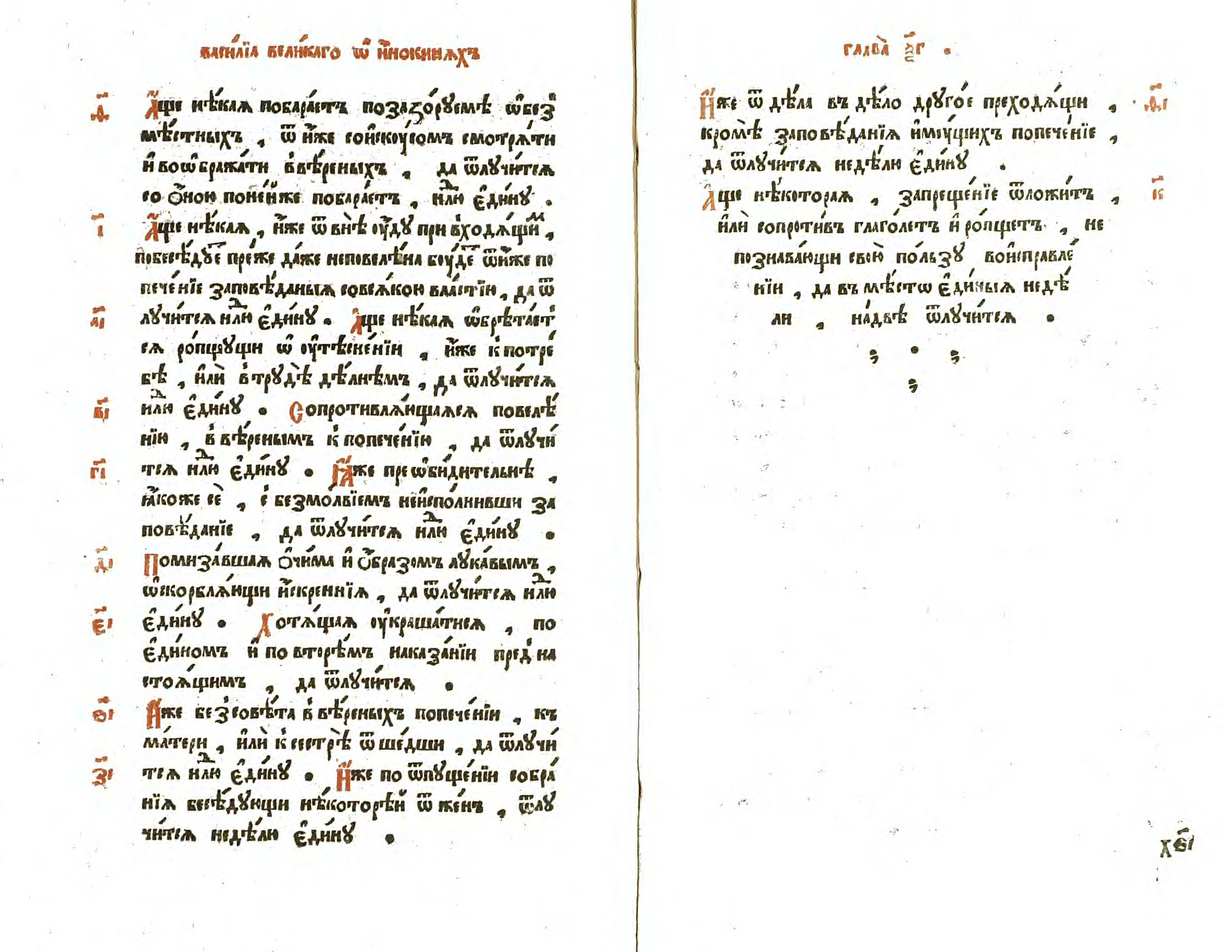 васи́лїа вели́каго ѡ и҆́нокинѧхъ
ѳ҃ А҆́ще нѣ́каѧ побара́етъ позазо́руемѣ ѡ҆без̾
мѣ́стныхъ , ѿ и҆́же со и҆скꙋ́сомъ смотрѧ́ти
и҆ воѡбража́ти в̾вѣ́реныхъ , да ѿлꙋчи́тсѧ
со о҆́ною поне́иже побара́етъ , нⷣлю є҆ди́нꙋ .
і҃ А҆́ще нѣ́каѧ , и҆́же ѿ внѣ̀ ѹ҆́дꙋ при в̾ходѧ́щиⷨ ,
побесѣ́дꙋетъ пре́же да́же неповелѣ́на бꙋ́деⷮ ѿ и҆́же по
пече́нїе заповѣ́даныѧ со всѧ́кою вла́стїю , да ѿ
а҃і лꙋчи́тсѧ нⷣлю є҆ди́нꙋ . А҆́ще нѣ́каѧ ѡ҆брѣта́ет
сѧ ро́пщꙋщи ѡ ѹ҆тѣсне́нїи , и҆́же к̾ потре́
бѣ , и҆лѝ в̾ трꙋ́дѣ дѣ́лнѣмъ , да ѿлꙋчи́тсѧ
в҃і нⷣлю є҆ди́нꙋ . Сопротивлѧ́ющаѧсѧ повелѣ́
нїю , в̾вѣ́ренымъ к̾ попече́нїю , да ѿлꙋчи́
г҃і тсѧ нⷣлю є҆ди́нꙋ . Ꙗ҆́же преѡби́дителнѣ ,
ꙗ҆́коже се̏ , с̾ безмо́лвїемъ неи҆спо́лнивши за
повѣ́данїе , да ѿлꙋчи́тсѧ нⷣлю є҆ди́нꙋ .
д҃і Помиза́вшаѧ о҆чи́ма и҆ о҆́бразомъ лꙋка́вымъ ,
ѡ҆скорблѧ́ющи и҆́скреннїѧ , да ѿлꙋчи́тсѧ нⷣлю
є҃і є҆ди́нꙋ . Хотѧ́щаѧ ѹ҆краша́тисѧ , по
є҆ди́номъ и҆ по вторѣ́мъ наказа́нїи пред̾ на
стоѧ́щимъ , да ѿлꙋчи́тсѧ .
ѕ҃і Ꙗ҆́же без̾ совѣ́та в̾вѣ́реныхъ попече́нїи , къ
ма́тери , и҆лѝ к̾ сестрѣ̀ ѿше́дши , да ѿлꙋчи́
з҃і тсѧ нⷣлю є҆ди́нꙋ . И҆́же по ѿпꙋще́нїи собра́
нїѧ бесѣ́дꙋющи нѣ́которѣй ѿ же́нъ , ѿлꙋ
чи́тсѧ недѣ́лю є҆ди́нꙋ .
глава̀
И҆́же ѿ дѣ́ла въ дѣ́ло дрꙋго́е преходѧ́щи , ѳ҃і
кромѣ̀ заповѣ́данїѧ и҆мꙋ́щихъ попече́нїе ,
да ѿлꙋчи́тсѧ недѣ́лю є҆ди́нꙋ .
А҆́ще нѣ́котораѧ , запреще́нїе ѿложи́тъ , к҃
и҆лѝ сопроти́въ глаго́летъ и҆ ро́пщетъ , не
познава́ющи свою̀ по́льзꙋ во и҆справле́
нїи , да въ мѣ́стѡ є҆ди́ныѧ недѣ́
ли , на́двѣ ѿлꙋчи́тсѧ .
хє҃і